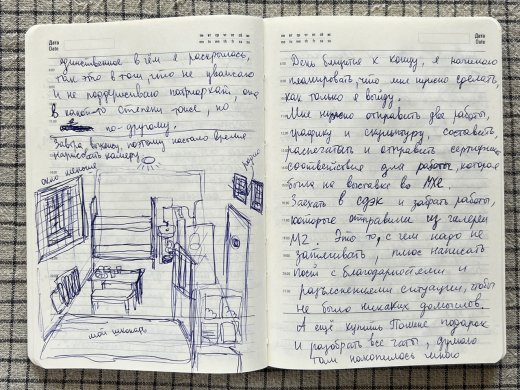 Дата
Date
единственное в чём я раскрылась,
так это в том, что не уважаю
и не поддерживаю патриархат, она
в какой-то степени тоже, но
по-другому.
Завтра выхожу, поэтому настало время
нарисовать камеру.
окно
радио
мой шконарь
Дата
Date
День близится к концу, я начинаю
планировать, что мне нужно сделать,
как только я выйду.
Мне нужно отправить две работы,
графику и скульптуру, составить,
распечатать и отправить сертификат
соответствия для работы, которая
была на выставке во
Заехать в СДЭК и забрать работы,
которые отправили из галереи
М2. Это то, с чем надо не
затягивать, плюс написать
пост с благодарностями и
разъяснениями ситуации, чтобы
не было никаких домыслов.
А ещё купить Полине подарок
и разобрать все чаты, думаю
там накопилось много